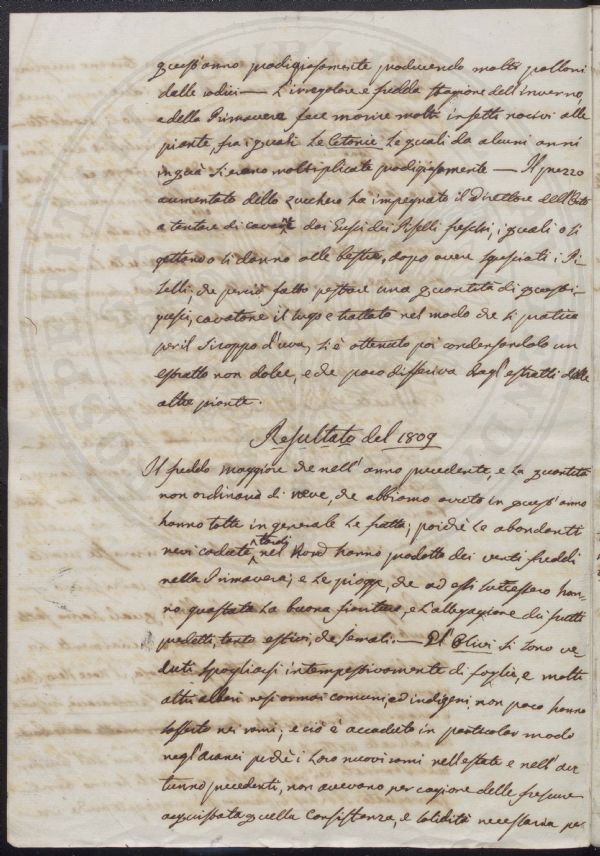 quest'anno prodigiosamente producendo molti polloni
dalle radici — L'irregolare e fredda stagione dell'inverno,
e della Primavera fece morire molti insetti nocivi alle
piante, fra i quali le Cetonie le quali da alcuni anni
in quà si erano moltiplicate prodigiosamente — Il prezzo
aumentato dello zucchero ha impegnato il Direttore dell'Orto
a tentare di cavarne dai Gusci dei Piselli freschi, i quali o si
gettano o si danno alle bestie, dopo avere sgusciati i Pi-
selli; che perciò fatto pestare una quantità di questi
gusci, cavatone il sugo e trattato nel modo che si pratica
per il Siroppo d'uva, si è ottenuto poi condensandolo un
estratto non dolce, e che poco differiva dagl'estratti delle
altre piante.
Resultato del 1809
Il freddo maggiore che nell'anno precedente, e la quantità
non ordinaria di neve, che abbiamo avuto in quest'anno
hanno tolte in generale le frutta; poichè le abondanti
nevi cadute tardi nel Nord hanno prodotto dei venti freddi
nella Primavera; e le piogge, che ad essi successero han-
no guastata la buona fioritura, e l'allegagione dei frutti
predetti, tanto estivi, che semali. — Gl'Olivi si sono ve-
duti spogliarsi intempestivamente di foglie, e molti
altri alberi resi ormai comuni, ed indigeni, non poco hanno
sofferto nei rami; e ciò è accaduto in particolar modo
negl'aranci perchè i loro nuovi rami nell'estate e nell'au-
tunno precedenti, non avevano per cagione delle frescure
acquistata quella Consistenza, e solidità necessaria per